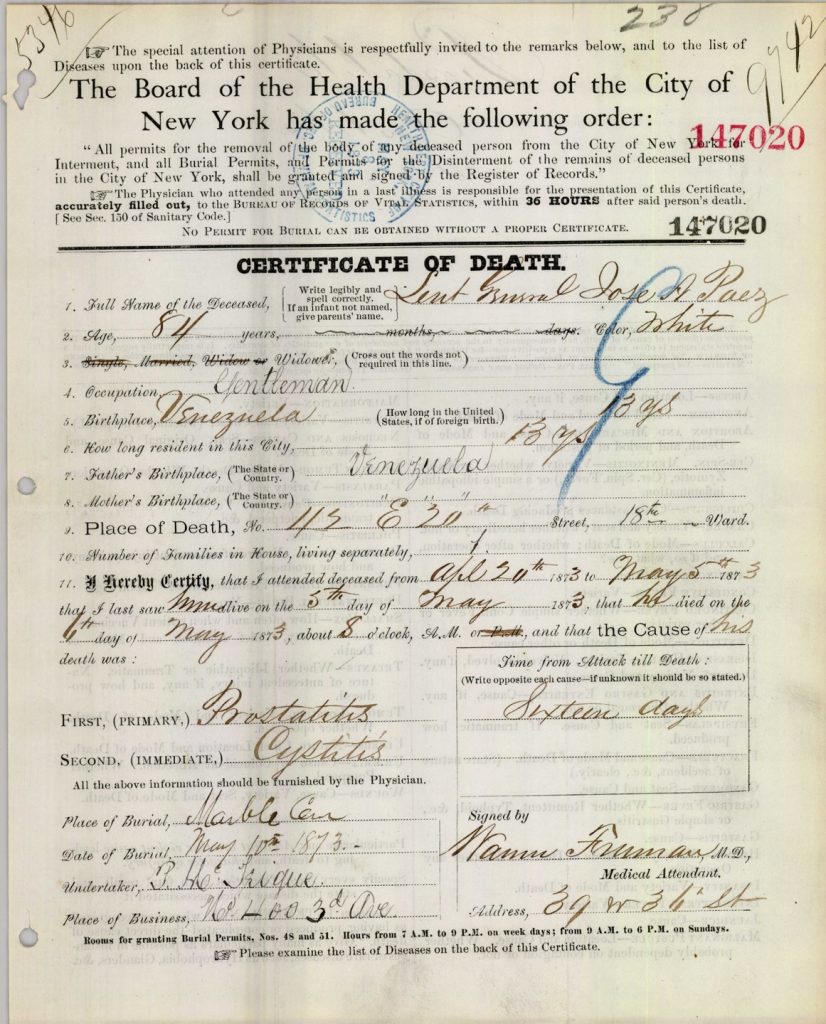 5346
238
9742
☞ The special attention of Physicians is respectfully invited to the remarks below, and to the list of
Diseases upon the back of this certificate.
The Board of the Health Department of the City of
New York has made the following order:
147020
"All permits for the removal of the body of any deceased person from the City of New York for
Interment, and all Burial Permits, and Permits for the Disinterment of the remains of deceased persons
in the City of New York, shall be granted and signed by the Register of Records."
☞ The Physician who attended any person in a last illness is responsible for the presentation of this Certificate,
accurately filled out, to the BUREAU OF RECORDS OF VITAL STATISTICS, within 36 HOURS after said person's death.
[See Sec. 150 of Sanitary Code.]
NO PERMIT FOR BURIAL CAN BE OBTAINED WITHOUT A PROPER CERTIFICATE.
147020
CERTIFICATE OF DEATH.
1. Full Name of the Deceased, { Write legibly and spell correctly. If an infant not named, give parents' name. } Leut General Jose A Paez
2. Age, 84 years, months, days. Color, White
3. Single, Married, Widow or Widower, (Cross out the words not required in this line.)
4. Occupation, Gentleman
5. Birthplace, Venezuela (How long in the United States, if of foreign birth.) 13 ys
6. How long resident in this City, 13 ys
7. Father's Birthplace, (The State or Country.) Venezuela
8. Mother's Birthplace, (The State or Country.) " "
9. Place of Death, No. 42 E 20th Street, 18th Ward.
10. Number of Families in House, living separately, 1.
11. I Hereby Certify, that I attended deceased from Apl 20th 1873 to May 5th 1873
that I last saw him alive on the 5th day of May 1873, that he died on the
6th day of May 1873, about 8 o'clock, A.M. or P.M., and that the Cause of his
death was:
Time from Attack till Death:
(Write opposite each cause—if unknown it should be so stated.)
FIRST, (PRIMARY,) Prostatitis Sixteen days
SECOND, (IMMEDIATE,) Cystitis
All the above information should be furnished by the Physician.
Place of Burial, Marble Cem
Date of Burial, May 10th 1873.
Signed by
Undertaker, P. Mc
Freeman, M.D.,
Medical Attendant.
Place of Business, No 400 3d Ave.
Address, 39 W 36 St
Rooms for granting Burial Permits, Nos. 48 and 51. Hours from 7 A.M. to 9 P.M. on week days; from 9 A.M. to 6 P.M. on Sundays.
☞ Please examine the list of Diseases on the back of this Certificate.